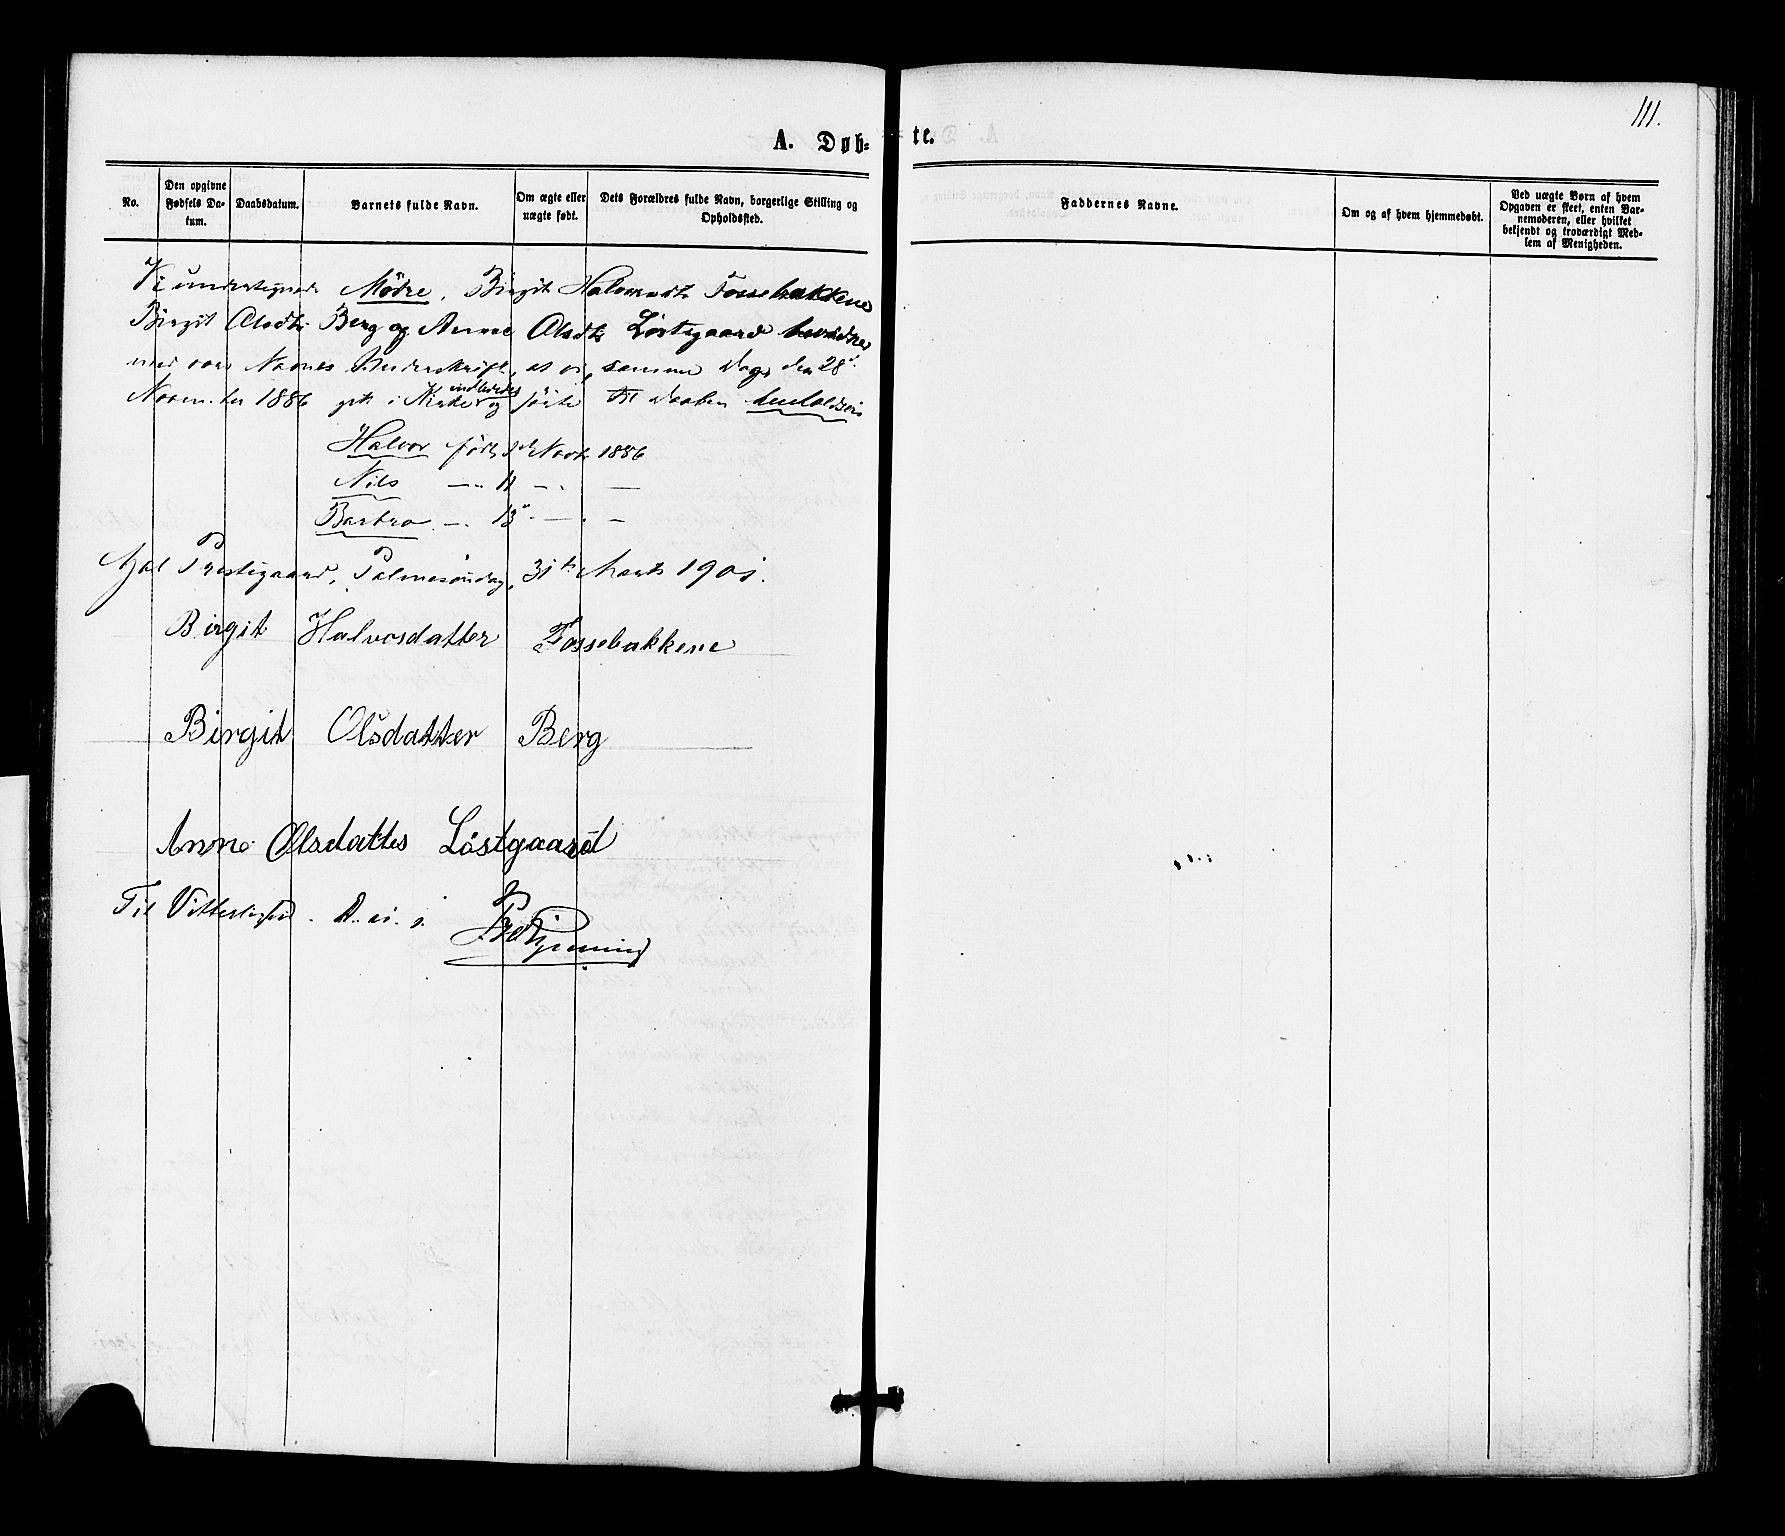 111.
A. Døb-te.
No.
Den opgivne Fødsels Da-tum.
Daabsdatum.
Barnets fulde Navn.
Om ægte eller uægte født.
Dets Forældres fulde Navn, borgerlige Stilling og Opholdssted.
Faddernes Navne.
Om og af hvem hjemmedøbt.
Ved uægte Børn af hvem Opgaven er skeet, enten Bar-nemoderen, eller hvilket bekjendt og troværdigt Med-lem af Menigheden.
Vi undertegnede Mødre, Birgit Halvorsdtr Fossebakkene
Birgit Olsdtr Berg og Anne Olsdtr Løstegaard bevidner
med vore Navnes Underskrift, at vi, samme Dag, den 28d
November 1886 gik i Kirke og førte til Daaben
indlededes
Halvor født Novbr 1886
Nils — 11 — —
Barbro — 13 — —
Aal Prestegaard, Palmesøndag, 31te Marts 1901.
Birgit Halvosdatter Fossebakkene
Birgit Olsdatter Berg
Anne Olsdatter Løstgaard
Til Vitterlighed. D. u. s.